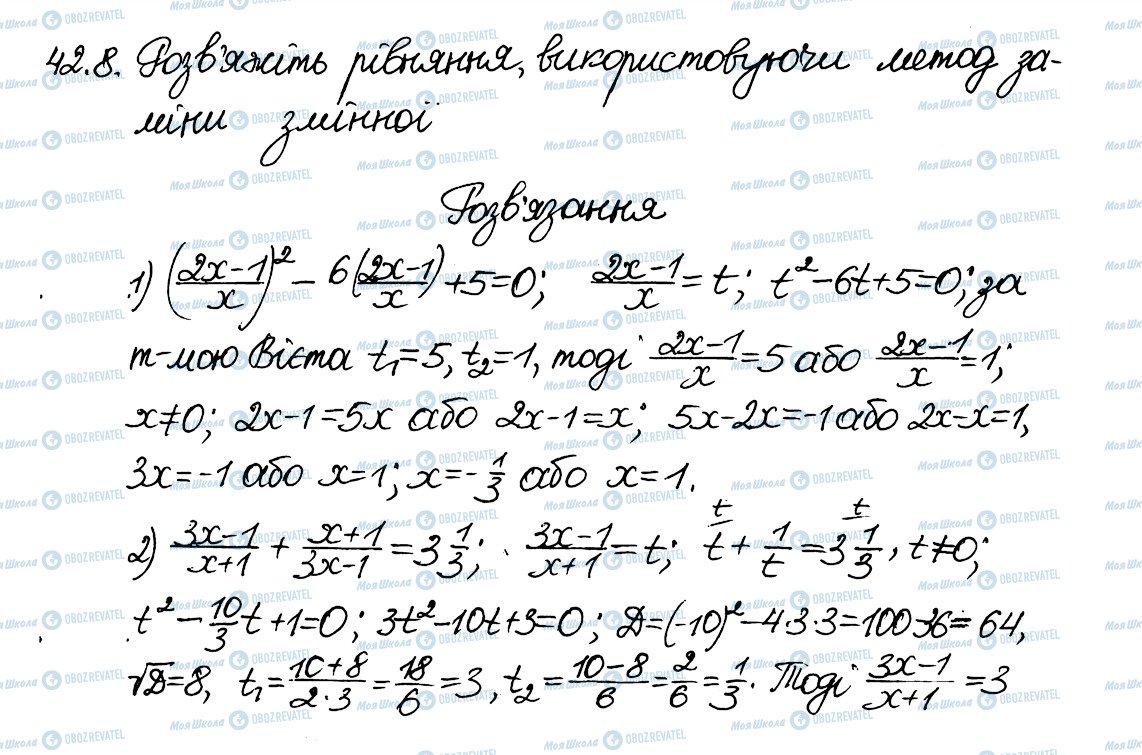 42.8. Розв'яжіть рівняння, використовуючи метод за-
міни змінної
Розв'язання
1) ((2x-1)/x)² - 6((2x-1)/x) + 5 = 0; (2x-1)/x = t; t² - 6t + 5 = 0; за
т-мою Вієта t₁ = 5, t₂ = 1, тоді (2x-1)/x = 5 або (2x-1)/x = 1;
x ≠ 0; 2x-1 = 5x або 2x-1 = x; 5x-2x = -1 або 2x-x = 1,
3x = -1 або x = 1; x = -1/3 або x = 1.
2) (3x-1)/(x+1) + (x+1)/(3x-1) = 3 1/3; (3x-1)/(x+1) = t; t + 1/t = 3 1/3, t ≠ 0;
t² - 10/3 t + 1 = 0; 3t² - 10t + 3 = 0; D = (-10)² - 4·3·3 = 100-36 = 64,
√D = 8, t₁ = (10+8)/(2·3) = 18/6 = 3, t₂ = (10-8)/6 = 2/6 = 1/3. Тоді (3x-1)/(x+1) = 3